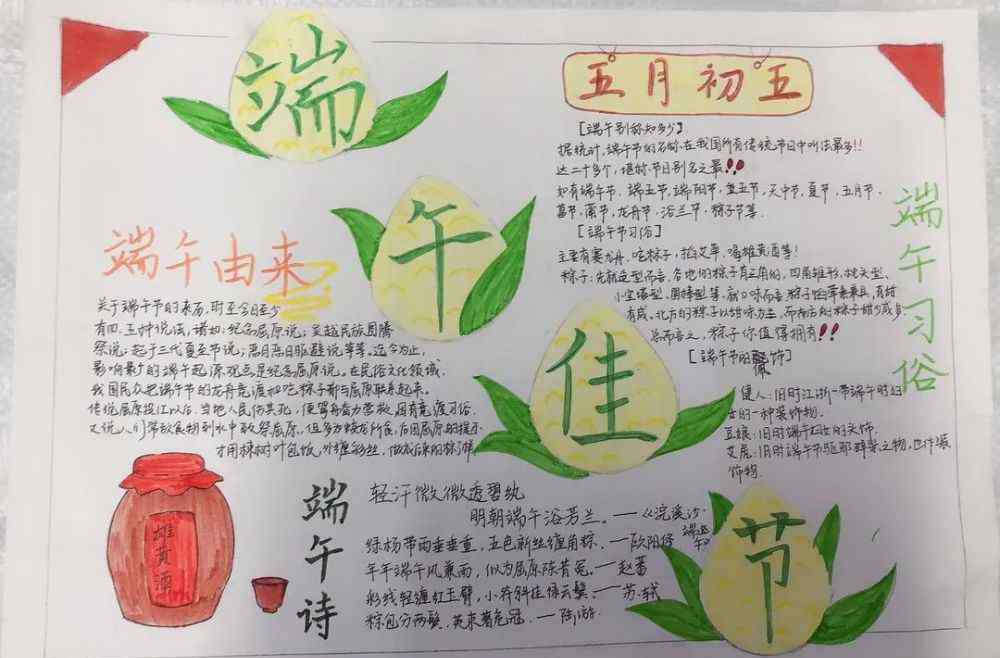 端
午
佳
节
五月初五
【端午别称知多少】
据统计,端午节的名称在我国所有传统节日中叫法最多!!
达二十多个,堪称节日别名之最!!
如有端午节、端五节,端阳节,重五节,天中节,夏节,五月节、
菖节,蒲节,龙舟节,浴兰节,粽子节等.
【端午节习俗】
主要有赛龙舟、吃粽子,挂艾草、喝雄黄酒等!
粽子:先就造型而言,各地的粽子有三角的,四角锥形,枕头型、
小宝塔型,圆棒型等,就口味而言粽子馅荤素兼具,有甜
有咸。北方的粽子以甜味为主,而南方的粽子甜少咸多
总而言之,粽子你值得拥有!!
【端午节的佩饰】
健人:旧时江浙一带端午时妇
女的一种装饰物.
豆娘:旧时端午妇女的头饰.
艾虎:旧时端午节驱邪辟祟之物,也作装
饰物.
端午习俗
端午由来
关于端午节的来历,时至今日至少
有四、五种说法,诸如:纪念屈原说;吴越民族图腾
祭说;起于三代夏至节说;恶月恶日驱避说等等。迄今为止,
影响最广的端午起源观点是纪念屈原说。在民俗文化领域.
我国民众把端午节的龙舟竞渡和吃粽子都与屈原联系起来。
传说屈原投江以后,当地人民伤其死,便驾舟奋力营救,因有竞渡习俗.
又说人们常放食物到水中致祭屈原,但多为蛟龙所食,后因屈原的提示
才用楝树叶包饭,外缠彩丝,做成后来的粽子样
雄黄酒
端午诗
轻汗微微透碧纨
明朝端午浴芳兰。—《浣溪沙·
端午》
绿杨带雨垂垂重,五色新丝缠角粽.—欧阳修
年年端午风兼雨,似为屈原陈昔冤。—赵蕃
彩线轻缠红玉臂,小符斜挂绿云鬟。—苏轼
粽包分两髻,艾束著危冠.—陆游.